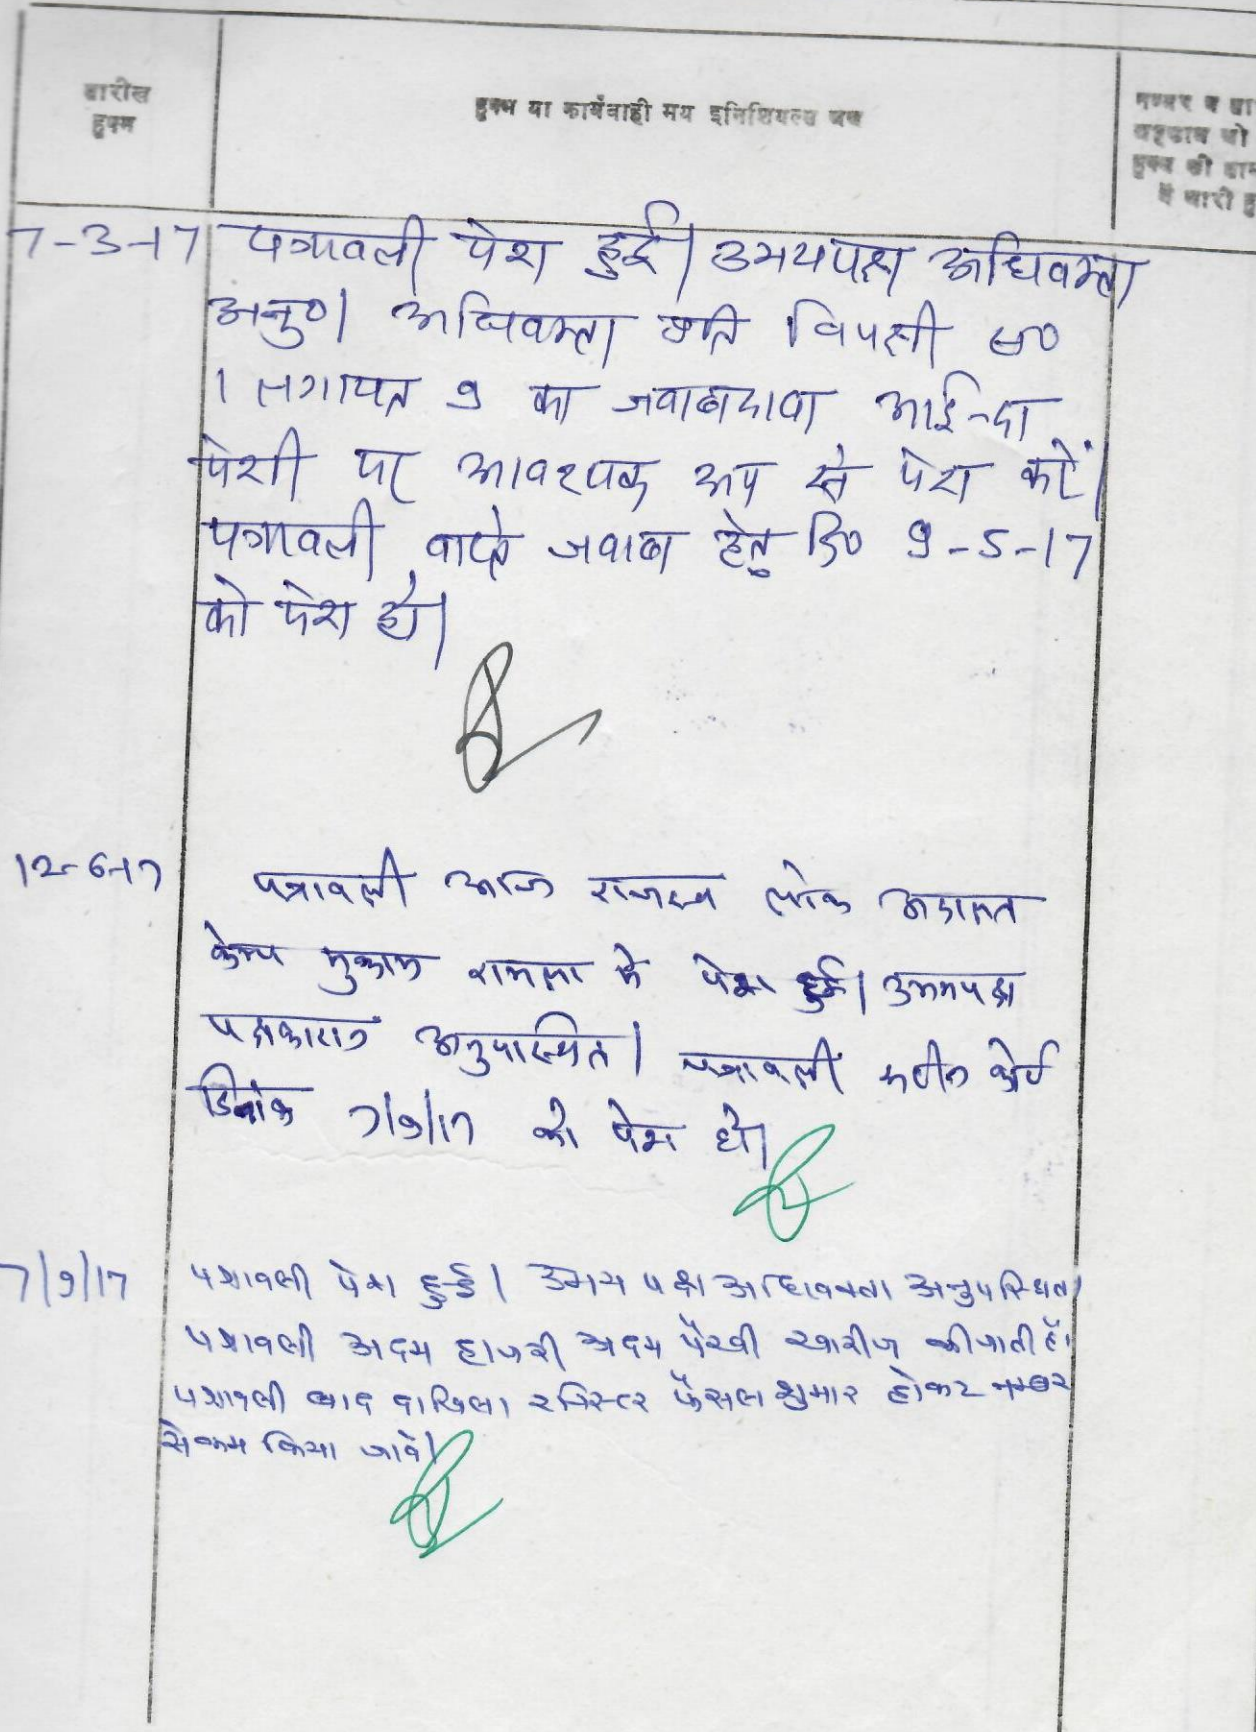 तारीख
हुक्म
हुक्म या कार्यवाही मय इनिशियल्स जज
नम्बर व
हुक्म की
में जारी
7-3-17 पत्रावली पेश हुई। उभयपक्ष अधिवक्ता
अनु०। अधिवक्ता प्रति विपक्षी सं०
1 लगायत 9 का जवाबदावा आईन्दा
पेशी पर आवश्यक रूप से पेश करें।
पत्रावली वास्ते जवाब हेतु दि० 9-5-17
को पेश हो।
12-6-17 पत्रावली आज राजस्व लोक अदालत
केम्प मुकाम में पेश हुई। उभयपक्ष
पक्षकारान अनुपस्थित। पत्रावली
दिनांक 7/9/17 को पेश हो।
7/9/17 पत्रावली पेश हुई। उभय पक्ष अधिवक्ता अनुपस्थित।
पत्रावली अदम हाजरी अदम पैरवी खारीज की जाती है।
पत्रावली बाद दाखिला रजिस्टर फैसल शुमार होकर नम्बर
से कम किया जावे।